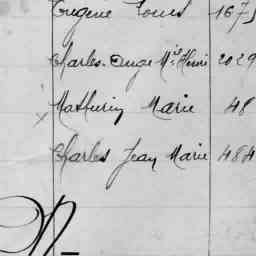 Eugène Louis 167
Charles-Ange Mie Henri 2029
Mathurin Marie 48
x
Charles Jean Marie 484
N